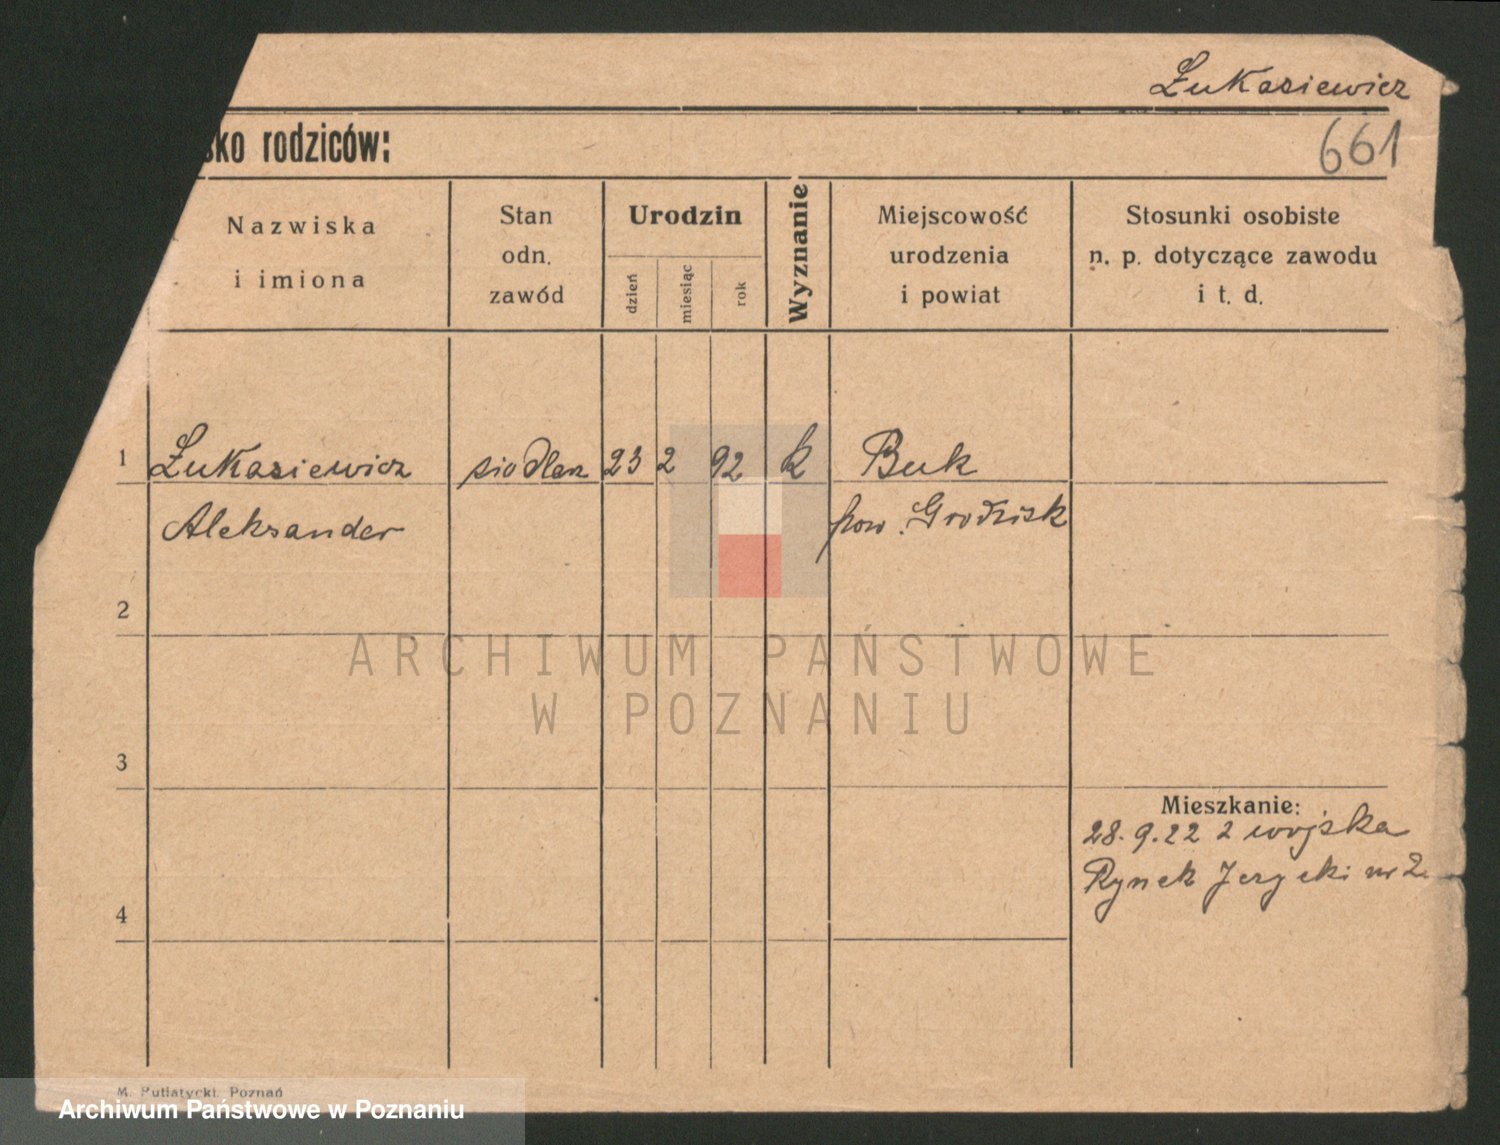 Łukasiewicz
sko rodziców:
661
Nazwiska
i imiona
Stan
odn.
zawód
Urodzin
dzień
miesiąc
rok
Wyznanie
Miejscowość
urodzenia
i powiat
Stosunki osobiste
n. p. dotyczące zawodu
i t. d.
1 Łukasiewicz siodlarz 23 2 92 k Buk
Aleksander pow. Grodzisk
2
ARCHIWUM PAŃSTWOWE
W POZNANIU
3
Mieszkanie:
28.9.22 z wojska
Rynek Jeżycki nr 2
4
M. Putiatycki, Poznań
Archiwum Państwowe w Poznaniu